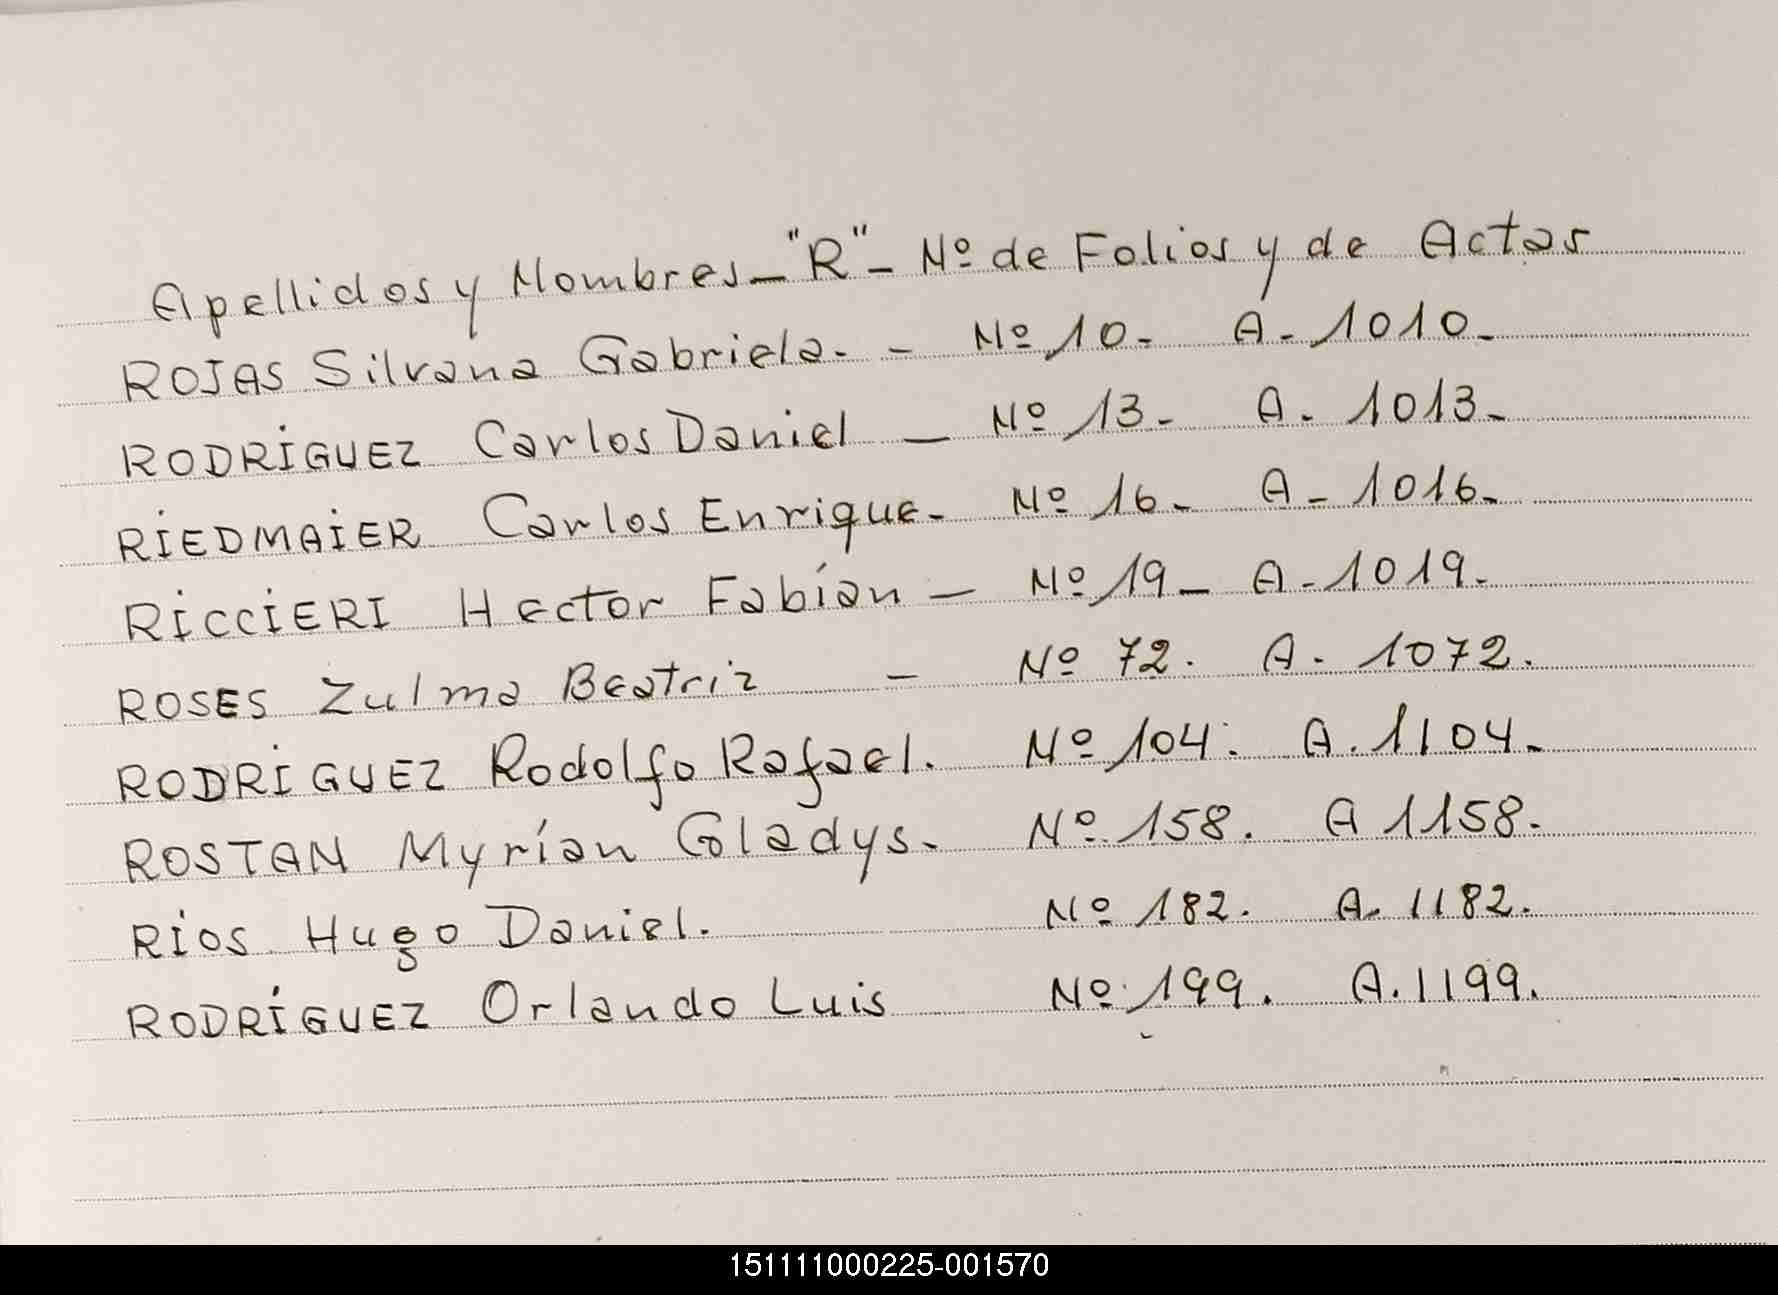 Apellidos y Nombres - "R" - Nº de Folios y de Actas
ROJAS Silvana Gabriela. - Nº 10. A. 1010.
RODRÍGUEZ Carlos Daniel - Nº 13. A. 1013.
RIEDMAIER Carlos Enrique. Nº 16. A - 1016.
RICCIERI Hector Fabían - Nº 19 - A - 1019.
ROSES Zulma Beatriz - Nº 72. A. 1072.
RODRIGUEZ Rodolfo Rafael. Nº 104. A. 1104.
ROSTAN Myrían Gladys. Nº 158. A 1158.
RÍOS Hugo Daniel. Nº 182. A. 1182.
RODRÍGUEZ Orlando Luis Nº 199. A. 1199.
151111000225-001570